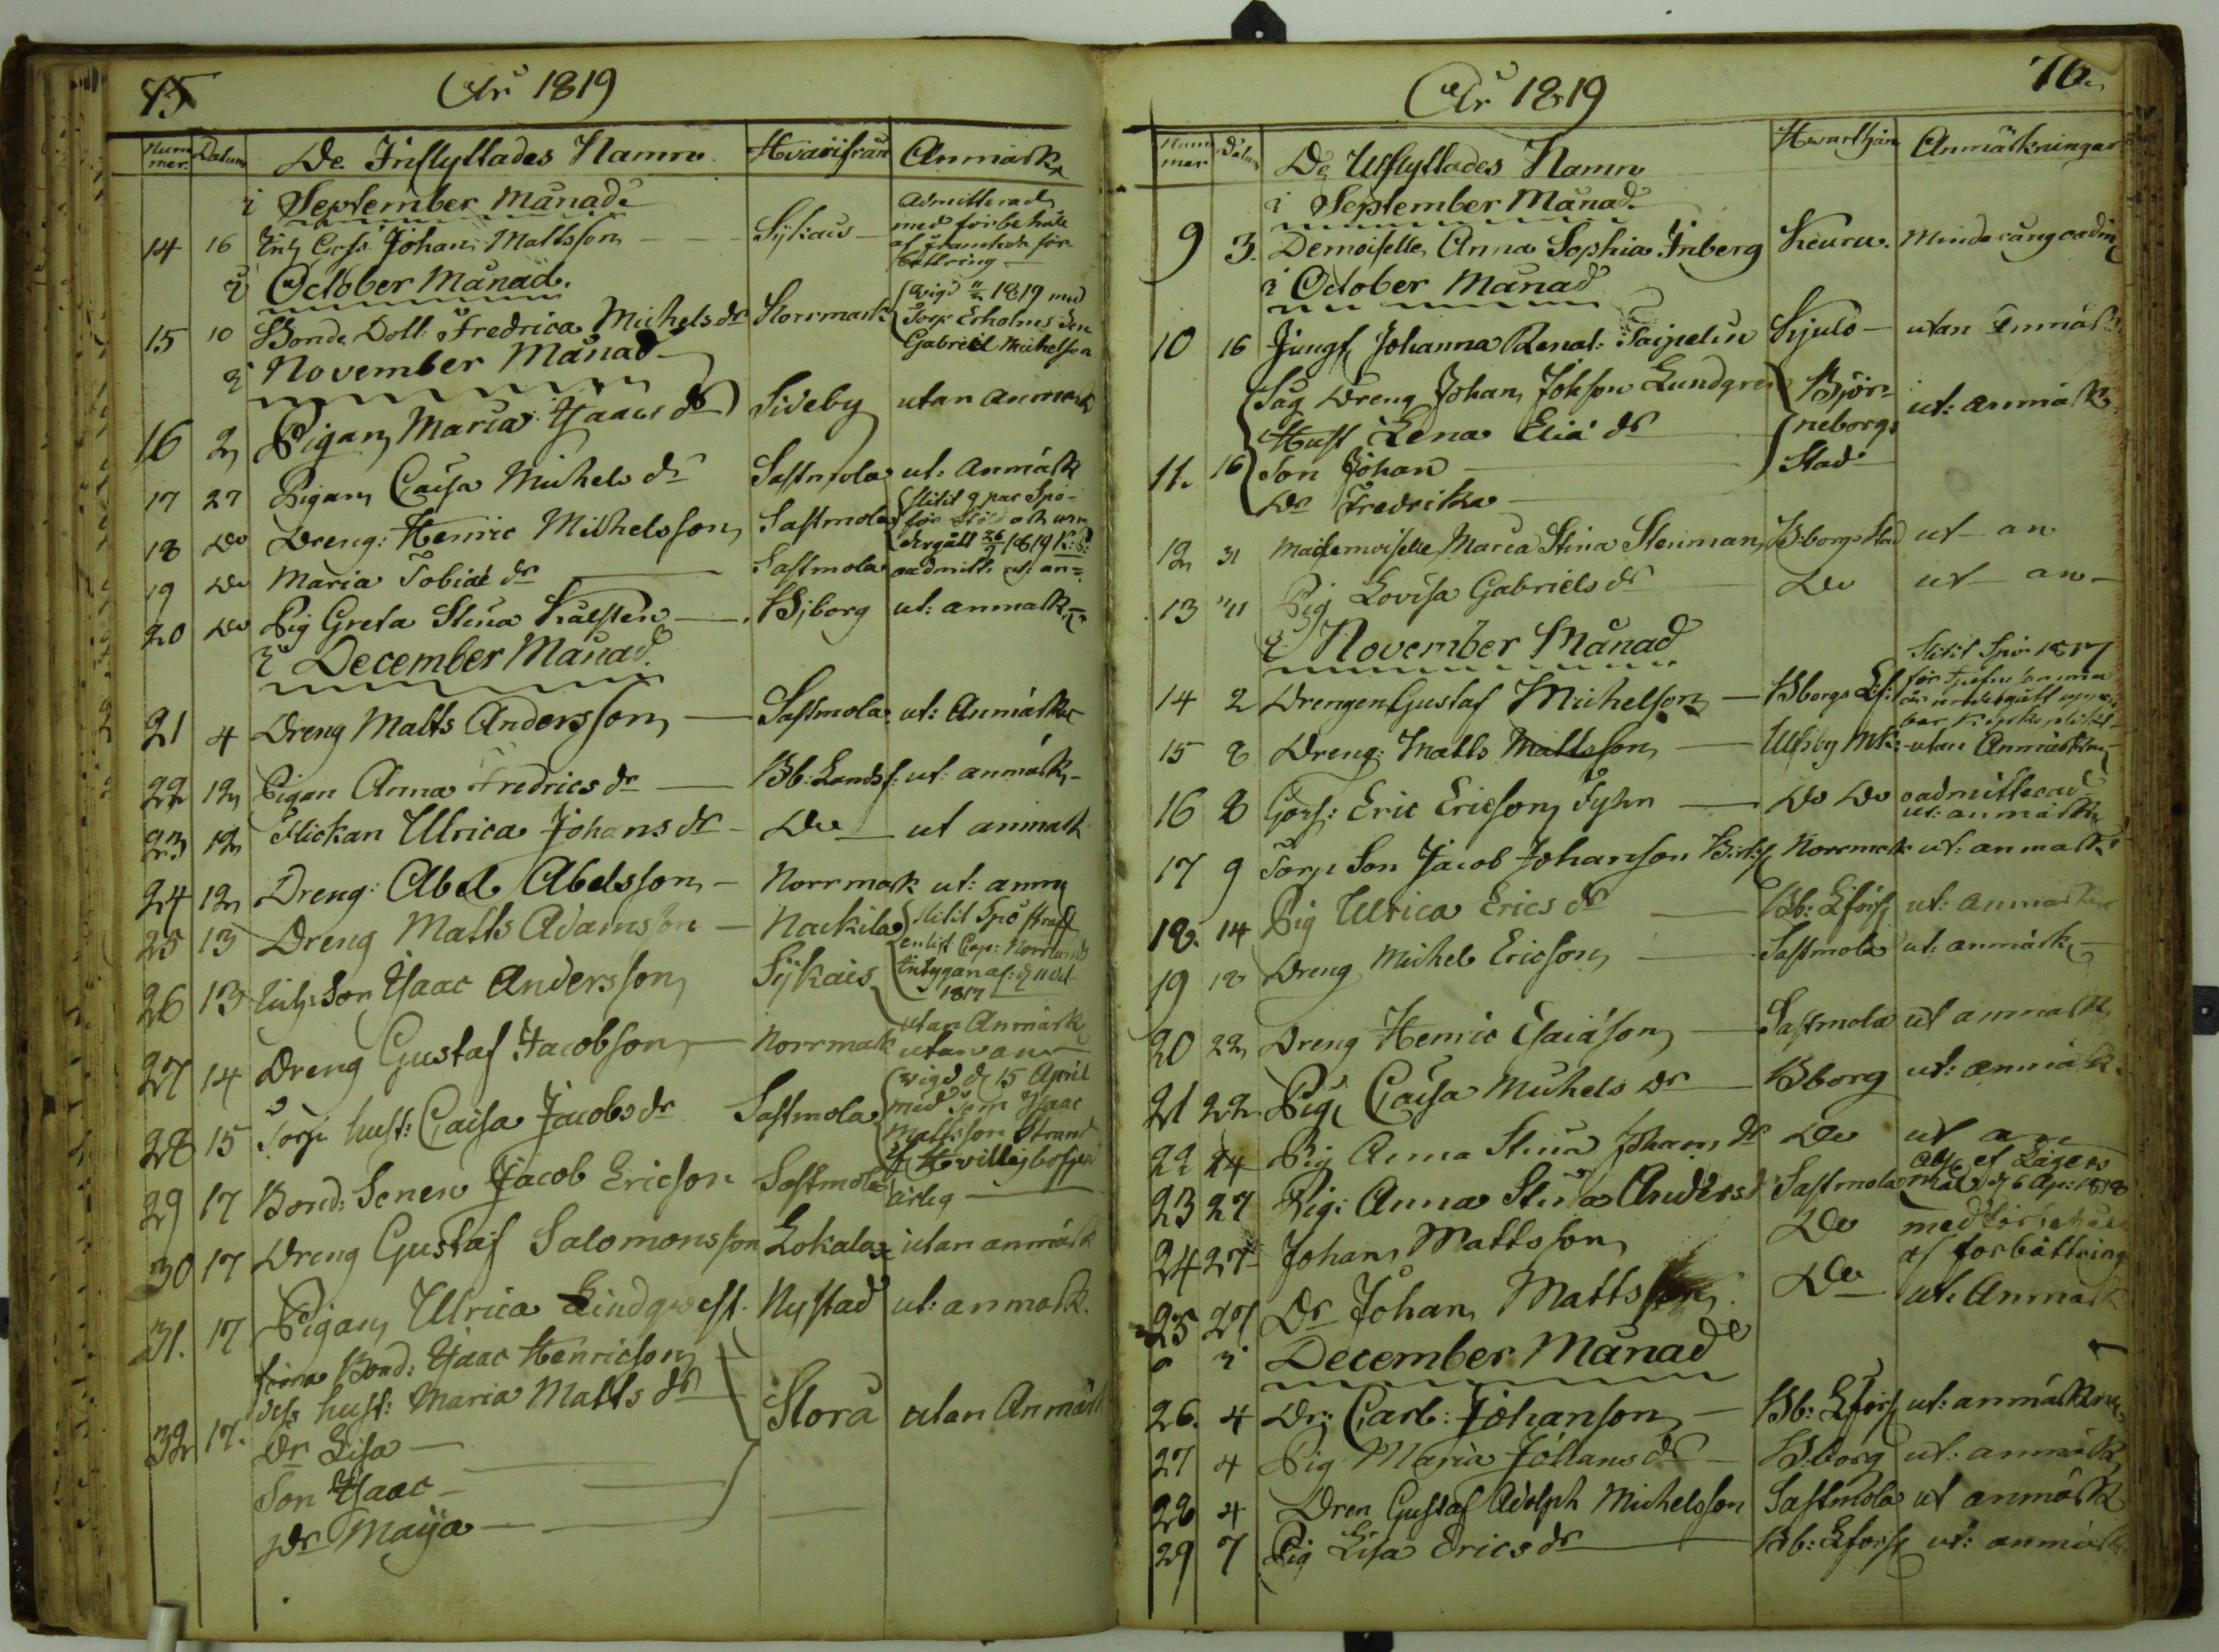 75 År 1819
Num
mer. Datum De Inflyttades Namn Hvarifrån Anmärk
i September Månad
14 16 Johan Mattsson Sijkais admitterad med förbehåll af framdeles förbättring
i October Månad.
15 10 Bonde Dott: Fredrica Michels dr Norrmark Vigd 1819 med
Torp: Erholms Son
Gabriel Michelson
i November Månad
16 2 Pigan Maria Isaacs dr Sideby utan anmärk
17 27 Pigan Caisa Michels dr Sastmola ut: anmärk
18 Do Dreng: Henric Michelsson Sastmola slitit 9 par Spö
för stöld och
undergått 26/9 1819 K: P:
19 Do Maria Tobiæ dr Sastmola oadmitt: ut: an
20 Do Pig Greta Stina Kalsten B:borg ut: anmärk
i December Månad.
21 4 Dreng Matts Andersson Sastmola ut: Anmärk
22 12 Pigan Anna Fredrics dr Bb: Landsf: ut: anmärk
23 12 Flickan Ulrica Johans dr Do ut anmärk
24 12 Dreng: Abel Abelsson Norrmark ut: anm
25 13 Dreng Matts Adamsson Nackila slitit Spö straff
enligt Cap: Norrlunds
intyg an af d 11 Oct
1817
26 13 Inh: Son Isaac Andersson Sijkais utan Anmärk
27 14 Dreng Gustaf Jacobson Norrmark utan an
28 15 Torp: hust: Caisa Jacobs dr Sastmola vigd d 15 April
med Isaac
Mattsson Strand
29 17 Bond: Sonen Jacob Ericson Sastmola ärlig
30 17 Dreng Gustaf Salomonsson Lokalax utan anmärk
31. 17 Pigan Ulrica Lindqwest. Nystad ut: anmärk.
förra Bond: Isaac Henricson
dess hust: Maria Matts dr
32 17. Dr Lisa Storå utan Anmärk
Son Isaac
Dr Maija
År 1819 76.
Num
mer Datum De Utflyttades Namn Hwarthän Anmärkningar
i September Månad
9 3. Demoiselle Anna Sophia Inberg Keuru. Minderårig oadm
i October Månad
10 16 Jungf Johanna Renat: Paipelin Kjulo utan Anmärk
Såg Dreng Johan Johsson Lundgren Björ-
Hust Lena Eliæ dr neborgs ut: anmärk
11. 16 Son Johan Stad
Dr Fredrika
12 31 Mademoiselle Maria Stina Stenman B:borgs Stad ut an
13 "11 Pig Lovisa Gabriels dr Do ut an
i November Månad
14 2 Drengen Gustaf Michelson B:borgs Lf: Slitit Spö 1817
för
är undergått uppen-
bar kyrko plikt
15 8 Dreng: Matts Mattsson Ulfsby MK: utan Anmärkn
16 8 Gårf: Eric Ericson Fyhr Do Do oadmitterad
ut: anmärkn
17 9 Torp Son Jacob Johanson Norrmark ut: anmärk
18. 14 Pig Ulrica Erics dr Bb: Lförs ut: anmärk
19 18 Dreng Michel Ericson Sastmola ut: anmärk
20 22 Dreng Henric Esaiæson Sastmola ut anmärk
21 22 Pig Caisa Michels dr B:borg ut: anmärk.
22 24 Pig Anna Stina Johans dr Do ut an
23 27 Pig: Anna Stina Anders d Sastmola abs: et Lägers
mål d 6 Apr: 1818
24 27 Johan Mattsson Do med förbehåll
af förbättring
25 27 Dr Johan Mattsson Do ut: Anmärk
i December Månad
26. 4 Dr: Carl: Johanson Bb: Lförs ut: anmärkn
27 4 Pig Maria Johans dr B:borg ut: anmärk
28 4 Dren Gustaf Adolph Michelsson Sastmola ut anmärk
29 7 Pig Lisa Erics dr Bb: Lförs ut: anmärk